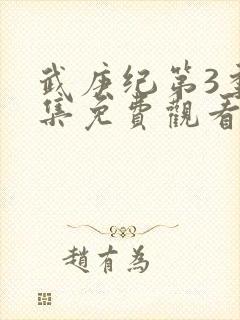 武庚纪第3季
集免費觀看
趙有為